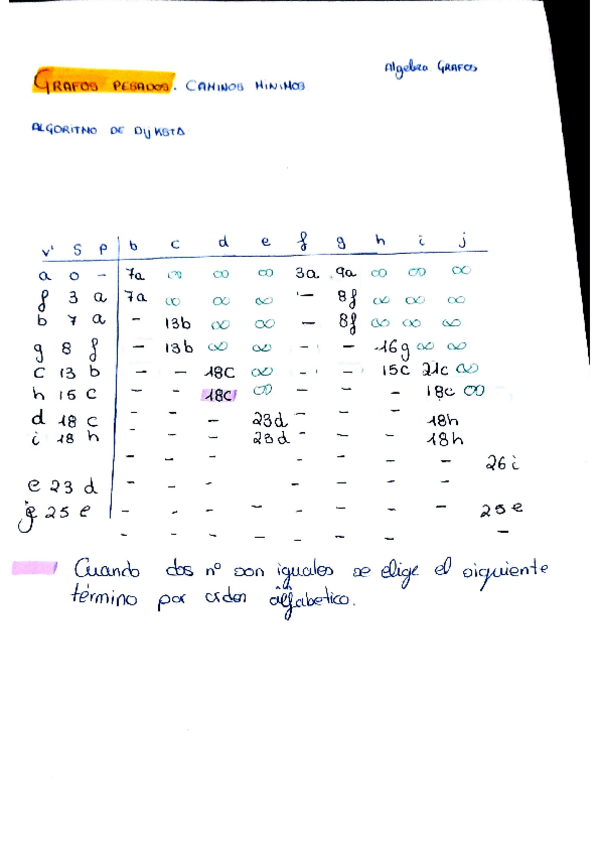 Algebra GRAFOS
GRAFOS PESADOS. CAMINOS MINIMOS
ALGORITMO DE DIJKSTA
v' S P b c d e f g h i j
a 0 - 7a ∞ ∞ ∞ 3a 9a ∞ ∞ ∞
f 3 a 7a ∞ ∞ ∞ - 8f ∞ ∞ ∞
b 7 a - 13b ∞ ∞ - 8f ∞ ∞ ∞
g 8 f - 13b ∞ ∞ - - 16g ∞ ∞
c 13 b - - 18c ∞ - - 15c 21c ∞
h 15 c - - 18c ∞ - - - 18c ∞
d 18 c - - - 23d - - - 18h
i 18 h - - - 23d - - - 18h
- - - - - - - 26i
e 23 d - - - - - - -
j 25 e - - - - - - - - 25e
- - - - - - - - -
Cuando dos nº son iguales se elige el siguiente
término por orden alfabetico.